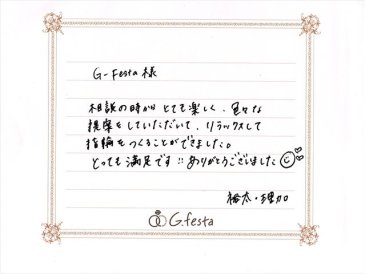 G-Festa 様
相談の時から とても楽しく、色々な
提案をしていただいて、リラックスして
指輪をつくることができました。
とっても満足です!! ありがとうございました
裕太・理加
G.festa